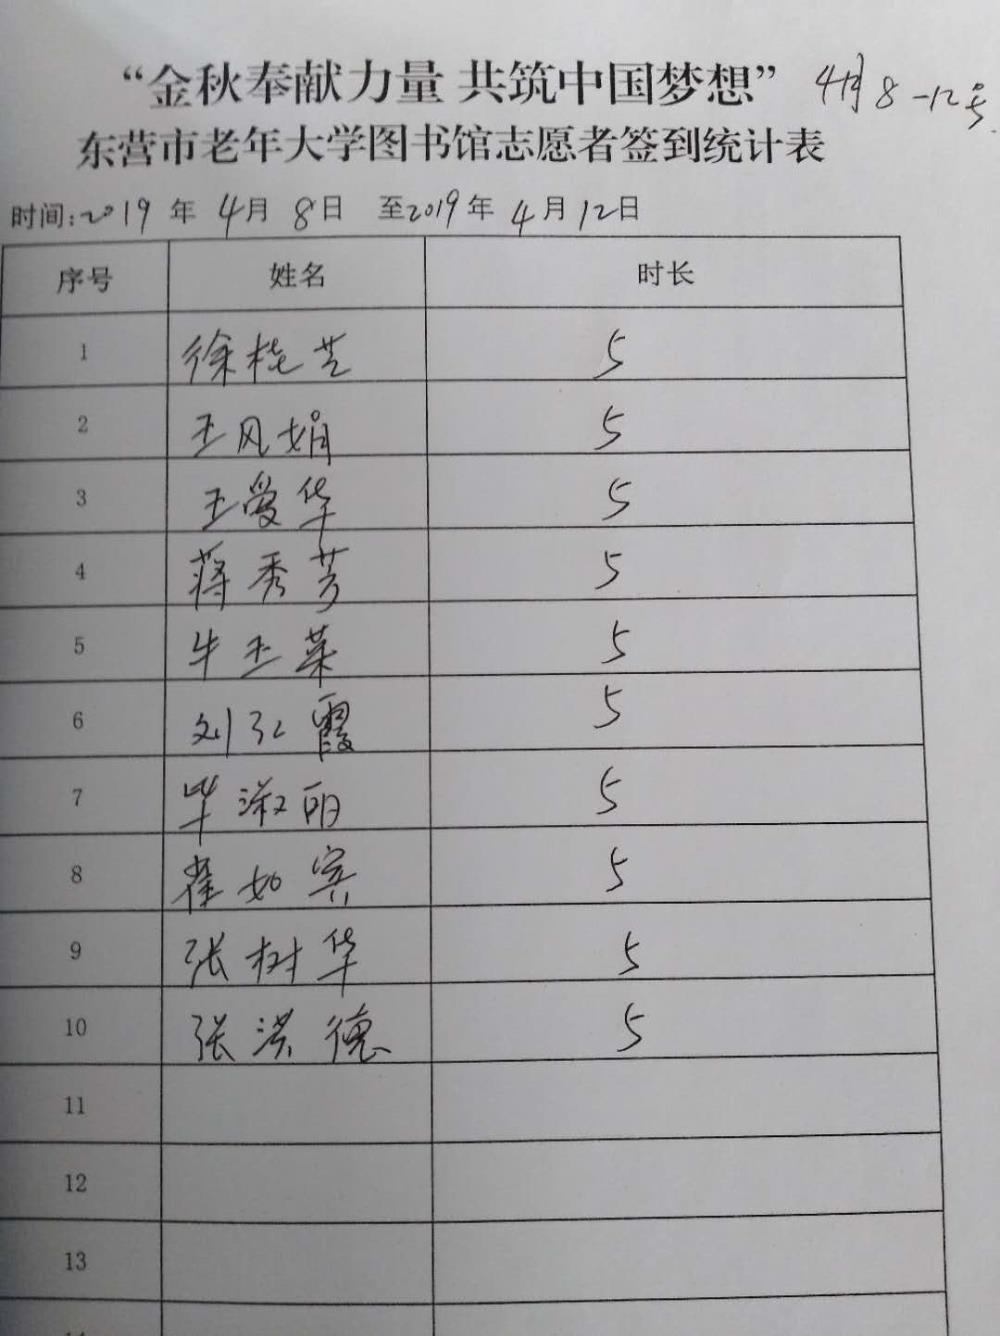 “金秋奉献力量 共筑中国梦想” 4月8-12号
东营市老年大学图书馆志愿者签到统计表
时间:2019 年 4月 8日 至2019年 4月12日
序号 姓名 时长
1 徐桂芝 5
2 王风娟 5
3 王爱华 5
4 蒋秀芳 5
5 牛玉菜 5
6 刘红霞 5
7 毕淑丽 5
8 崔如宾 5
9 张树华 5
10 张洪德 5
11
12
13